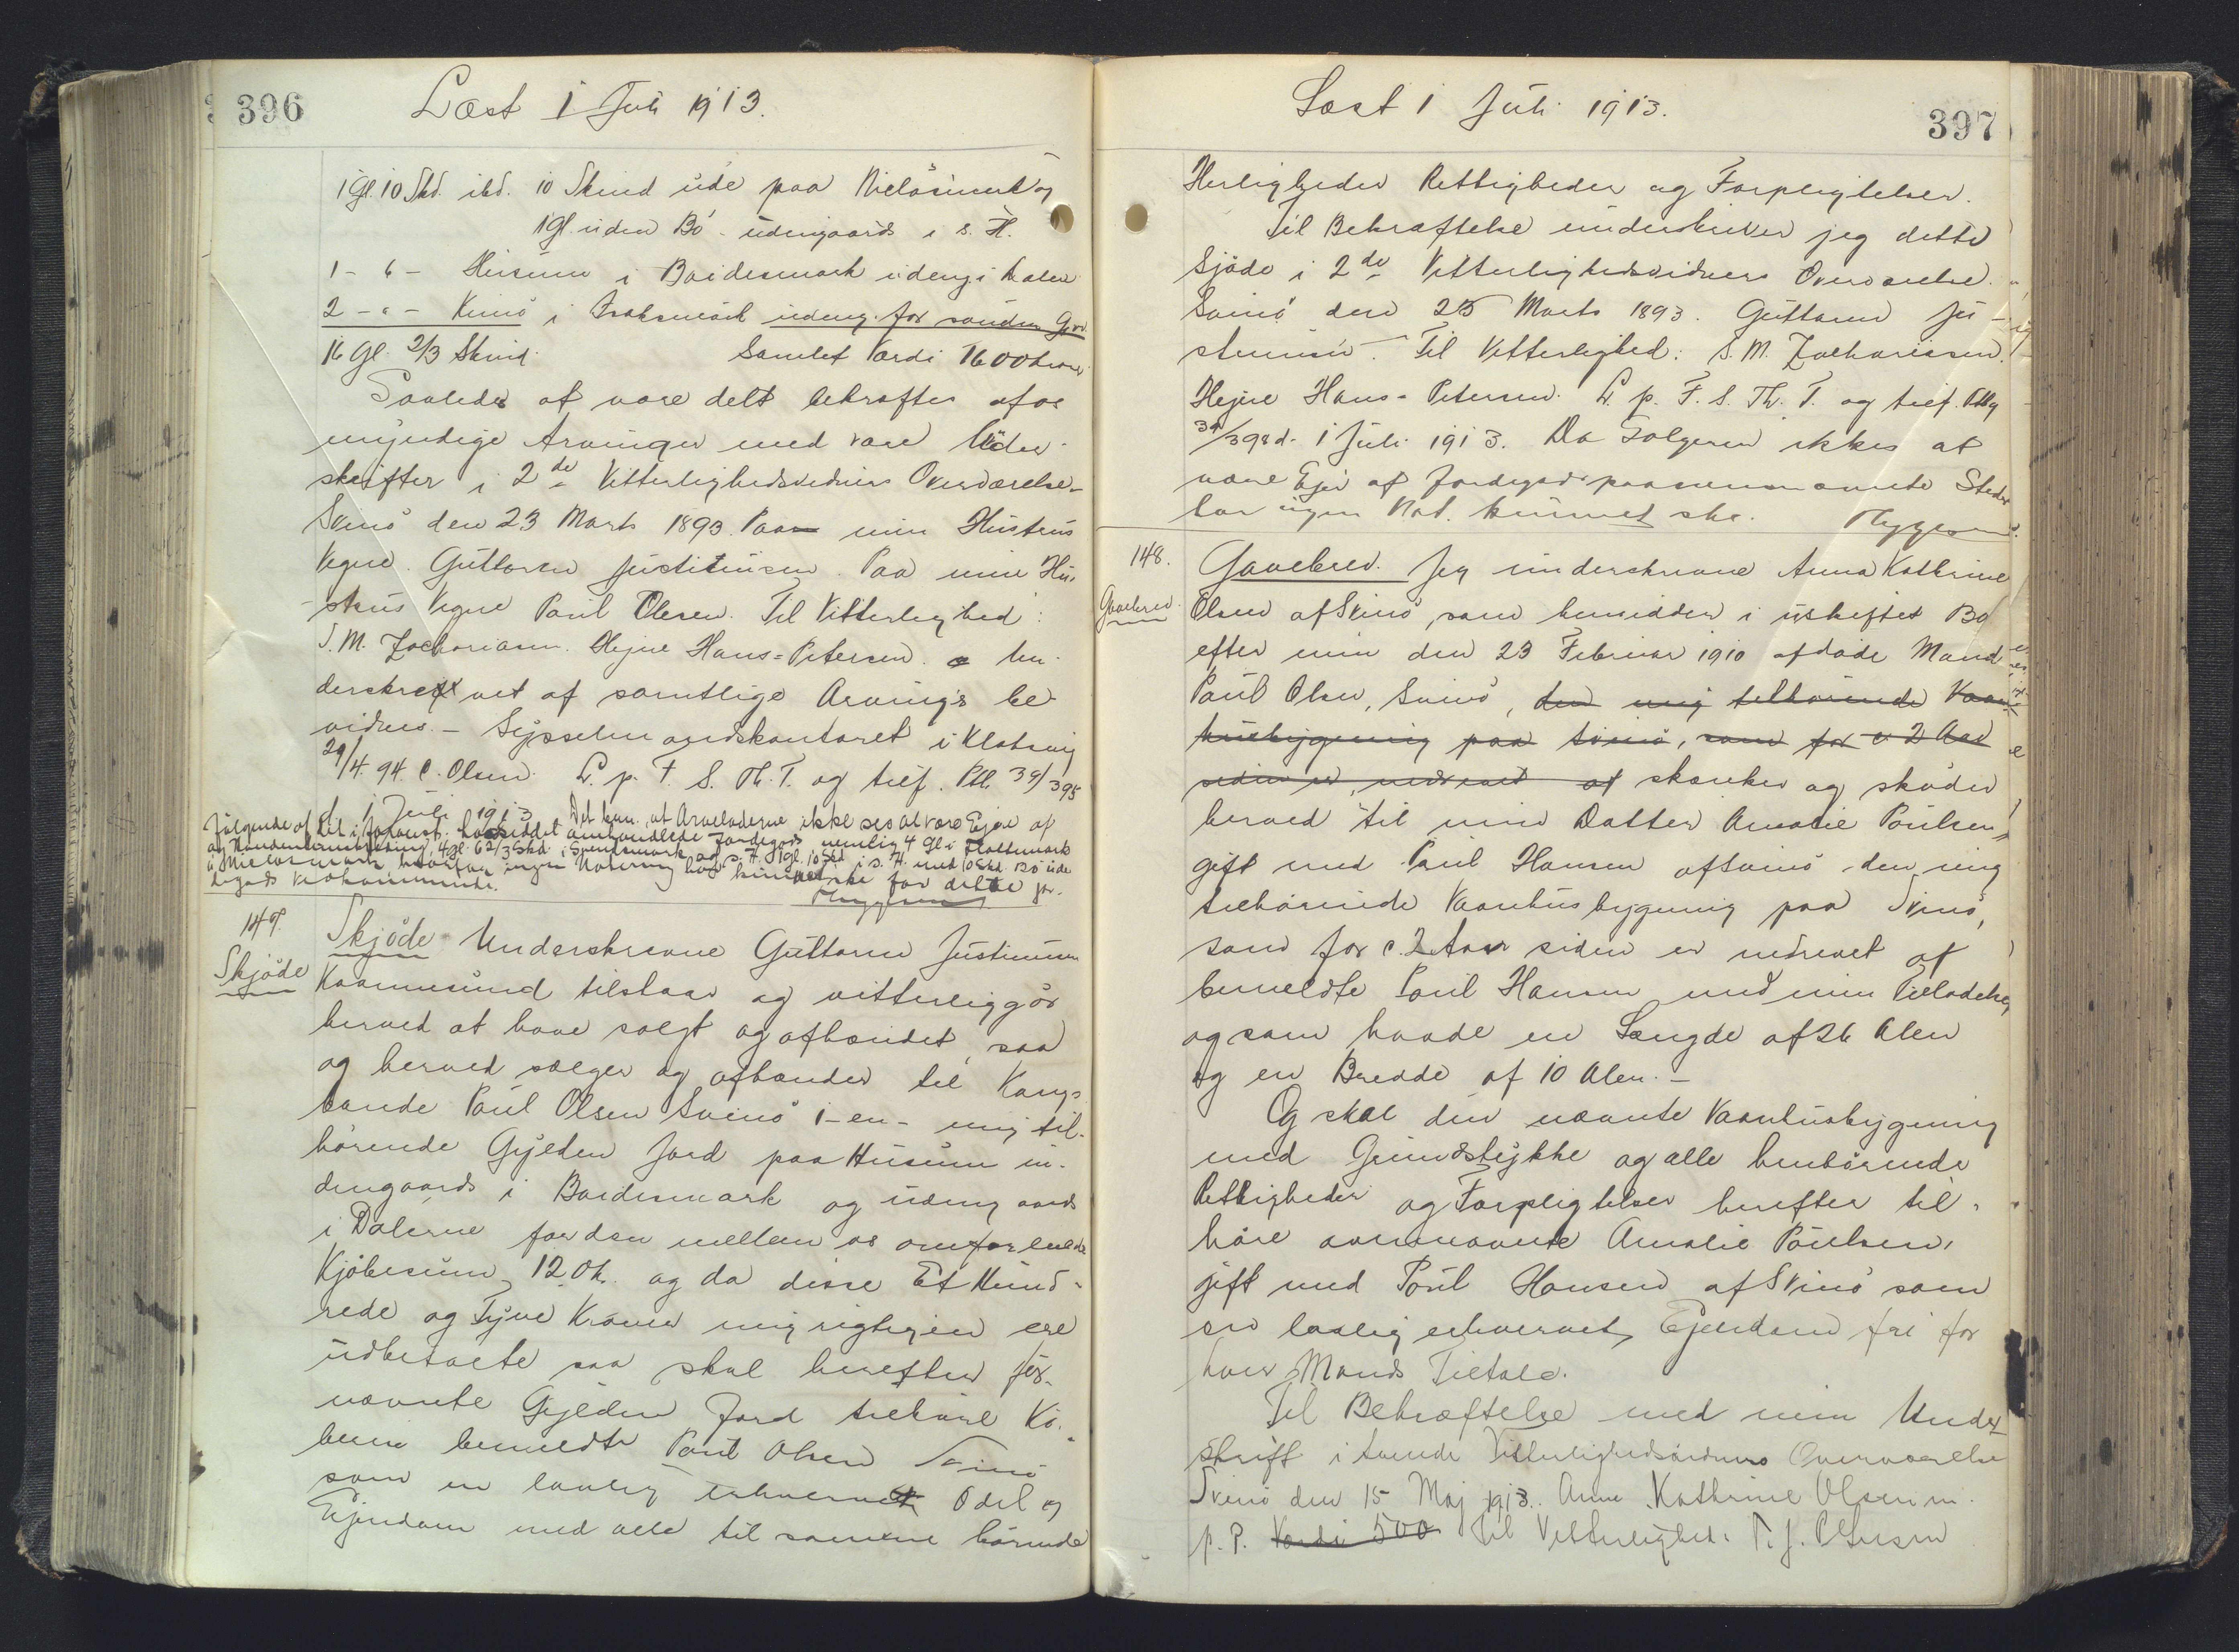 396
Læst 1 Juli 1913.
1 Gl. 10 Skd. ibd. 10 Skind ude paa og
1 Gl. uden Bö - udengaards i s. H.
1 - 6 - Húsum i Bardesmark udeng. i Dalen
2 - " - Kunö i udeng. for sönden Gen.
16 Gl. 2/3 Skind. Samlet Værdi 1600 Kroner
Saaledes at være delt bekræftes af os
myndige Arvinger med vore Under-
skrifter i 2de Vitterlighedsvidners Overværelse.
Svinö den 23 Marts 1893. Paa min Hustrus
Vegne. Guttorm Justinussen. Paa min Hu-
strus Vegne Paul Olesen. Til Vitterlighed:
S. M. Zachariasen. Hejne Hans=Petersen. Un-
derskrevet af samtlige Arvinger be-
vidnes. - Sysselmandskontoret i Klaksvig
29/4 94. C. Olsen. L. p. F. S. Th. T. og tilf. Ptl. 39/395
d. 1 Juli 1913. Det bem. at Arveladerne ikke ses at være Ejer af
Følgende af det i foranst. afhandlede Jordegods nemlig 4 Gl. i
4 Gl. 6 2/3 Skd. i og s. H. 1 Gl. 10 Skd. i s. H. med 10 Skd. Bö ude
hvorfor ingen Notering har kunnet ske for dette Jor-
degods vedkommende.
147.
Skjöde
Skjöde Underskrevne Guttorm Justinussen
Kvannesund tilstaar og vitterliggör
herved at have solgt og afhændet, saa
og herved sælger og afhænder til Kongs-
bonde Paul Olsen Svinö 1 - en - mig til-
hörende Gylden Jord paa Húsum in-
dengaards i Bardesmark og udengaards
i Dalerne for den mellem os omforenede
Kjöbesum 120 Kr. og da disse Et Hund-
rede og Tyve Kroner mig rigtigen ere
udbetalte saa skal herefter för-
nævnte Gylden Jord tilhöre Kö-
beren bemeldte Paul Olsen Svinö
som en lovlig erhvervet Odel og
Ejendom med alle til samme hörende
397
Læst 1 Juli 1913.
Herligheder Rettigheder og Forpligtelser.
Til Bekræftelse underskriver jeg dette
Skjöde i 2de Vitterlighedsvidners Overværelse.
Svinö den 25 Marts 1893. Guttorm Ju-
stinussen. Til Vitterlighed: S. M. Zachariasen.
Hejne Hans=Petersen. L. p. F. S. Th. T. og tilf. Ptl.
39/398 d. 1 Juli 1913. Da Sælgeren ikke ses at
være Ejer af Jordegods paa ovennævnte Steder
har ingen Not. kunnet ske.
148.
Gavebrev
Gavebrev. Jeg underskrevne Anna Kathrine
Olsen af Svinö, som hensidder i uskiftet Bo
efter min den 23 Februar 1910 afdöde Mand
Paul Olsen, Svinö, den mig tilhörende Vaan-
husbygning paa Svinö, som for c. 2 Aar
siden er nedrevet af skænker og sköder
herved til min Datter Amalie Poulsen,
gift med Paul Hansen af Svinö den mig
tilhörende Vaanhusbygning paa Svinö,
som for c. 2 Aar siden er nedrevet af
bemeldte Poul Hansen med min Tilladelse,
og som havde en Længde af 26 Alen
og en Bredde af 10 Alen. -
Og skal den nævnte Vaanhusbygning
med Grundstykke og alle henhörende
Rettigheder og Forpligtelser herefter til-
höre ovennævnte Amalie Poulsen,
gift med Poul Hansen af Svinö som
sin lovlig erhvervet Ejendom fri for
hver Mands Tiltale.
Til Bekræftelse med min Under-
skrift i tvende Vitterlighedsvidners Overværelse
Svinö den 15 Maj 1913. Anna Kathrine Olsen m.
p. P. Værdi 500 Til Vitterlighed: P. J. Olsen